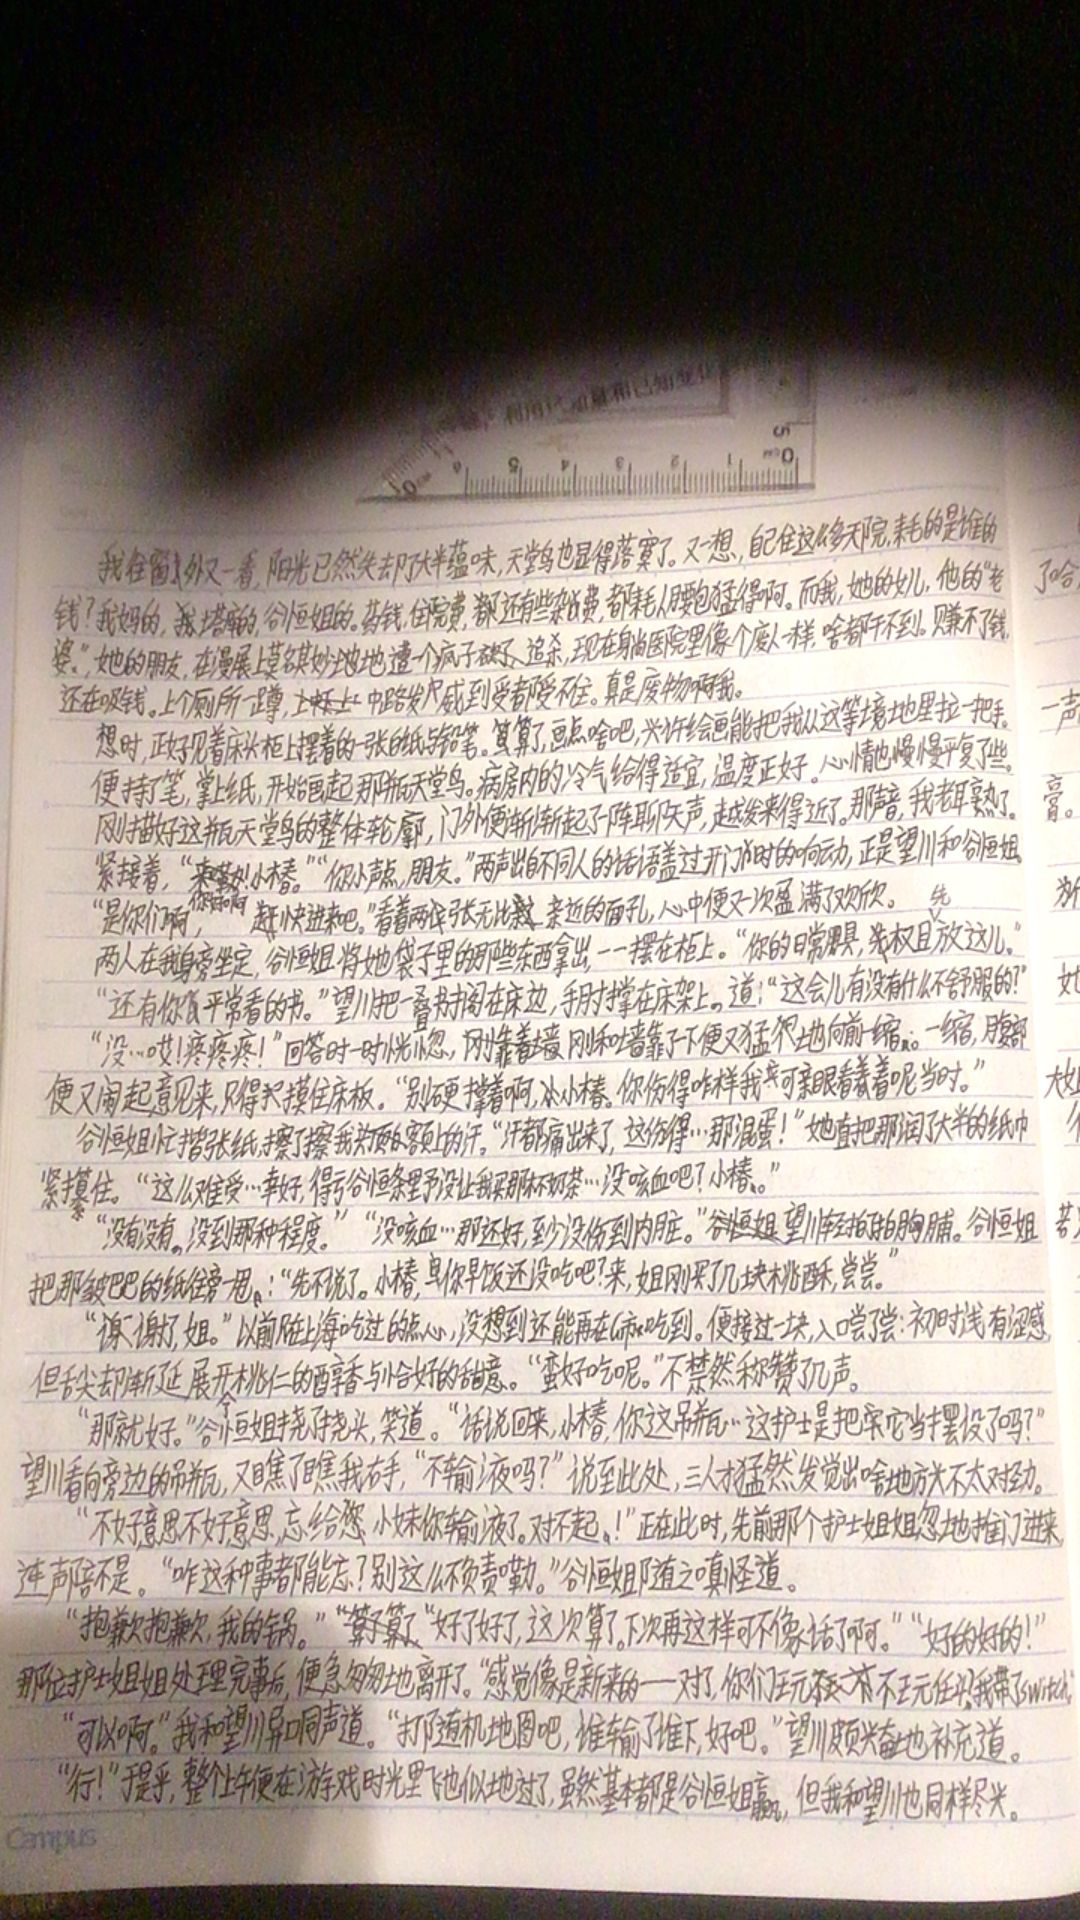 利用 和已知
我往窗外又一看,阳光已然失却了大半蕴味,天堂鸟也显得落寞了。又想,自己住这么多天院,耗的是谁的
钱?我妈的,塔 的,谷恒姐的。药钱,住院费,都还有些杂费,都耗人腰包猛得啊。而我,她的女儿,他的“老
婆”,她的朋友,在漫展上莫名其妙地遭一个疯子砍了、追杀,现在身 医院里像个废人一样,啥都干不到。赚不了钱,
还在吸钱。上个厕所一蹲, 中路发 感到受都受不住。真是废物啊我。
想时,正好见着床头柜上摆着的一张白纸与铅笔。算算了,画点啥吧,兴许绘画能把我从这等境地里拉一把手。
便持了笔,掌上纸,开始画起那瓶天堂鸟。病房内的冷气给得适宜,温度正好。心情也慢慢平复了些。
刚描好这瓶天堂鸟的整体轮廓,门外便渐渐起了阵聊天声,越发来得近了。那声音,我老耳熟了。
紧接着,“ 小椿。”“你小声点,朋友。”两声出自不同人的话语盖过开门时的响动,正是望川和谷恒姐。
“是你们啊, 赶快进来吧。”看着两张无比 亲近的面孔,心中便又一次盈满了欢欣。
两人在我身旁坐定,谷恒姐将她袋子里的那些东西拿出,一一摆在柜上。“你的日常用具,先权且放这儿。”
“还有你 平常看的书。”望川把一叠书搁在床边,手肘撑在床架上。道:“这会儿有没有什么不舒服的?”
“没…哎!疼疼疼!”回答时一时恍忽, 刚和墙靠了一下便又猛不 地向前一缩。一缩,腹部
便又闹起意见来,只得 摸住床板。“别硬撑着啊,小椿。你伤得咋样我 可亲眼看着呢当时。”
谷恒姐忙揩张纸,擦了擦我 额上的汗。“汗都痛出来了,这伤得…那混蛋!”她直把那润了大半的纸巾
紧攥住。“这么难受…幸好,得亏谷恒条 没让我买那杯奶茶…没咳血吧?小椿。”
“没有没有。没到那种程度。”“没咳血…那还好,至少没伤到内脏。” 望川轻拍拍胸脯。谷恒姐
把那皱巴巴的纸往旁一甩。:“先不说了。小椿, 你早饭还没吃吧?来,姐刚买了几块桃酥,尝尝。”
“谢、谢了,姐。”以前 在上海吃过的点心,没想到还能再在 吃到。便接过一块,入口尝了尝:初时浅有涩感,
但舌尖却渐延展开桃仁的醇香与恰好的甜意。“蛮好吃呢。”不禁然称赞了几声。
“那就好。”谷恒姐挠了挠头,笑道。“话说回来,小椿,你这吊瓶…这护士是把 它当摆设了吗?”
望川看向旁边的吊瓶,又瞧了瞧我右手,“不输液吗?”说至此处,三人才猛然发觉出啥地方 不太对劲。
“不好意思不好意思,忘给 小妹你输液了。对不起。!”正在此时,先前那个护士姐姐忽地推门进来,
连声陪不是。“咋这种事都能忘?别这么不负责嘞。”谷恒姐随之嗔怪道。
“抱歉抱歉,我的锅。”“好了好了,这次算了。下次再这样可不像话了啊。”“好的好的!”
那位护士姐姐处理完事后,便急匆匆地离开了。“感觉像是新来的——对了,你们玩 不玩 ,我带了switch。”
“可以啊。”我和望川异口同声道。“打随机地图吧,谁输了谁下,好吧。”望川颇兴奋地补充道。
“行!”于是乎,整个上午便在游戏时光里飞也似地过了,虽然基本都是谷恒姐赢,但我和望川也同样尽兴。
Campus